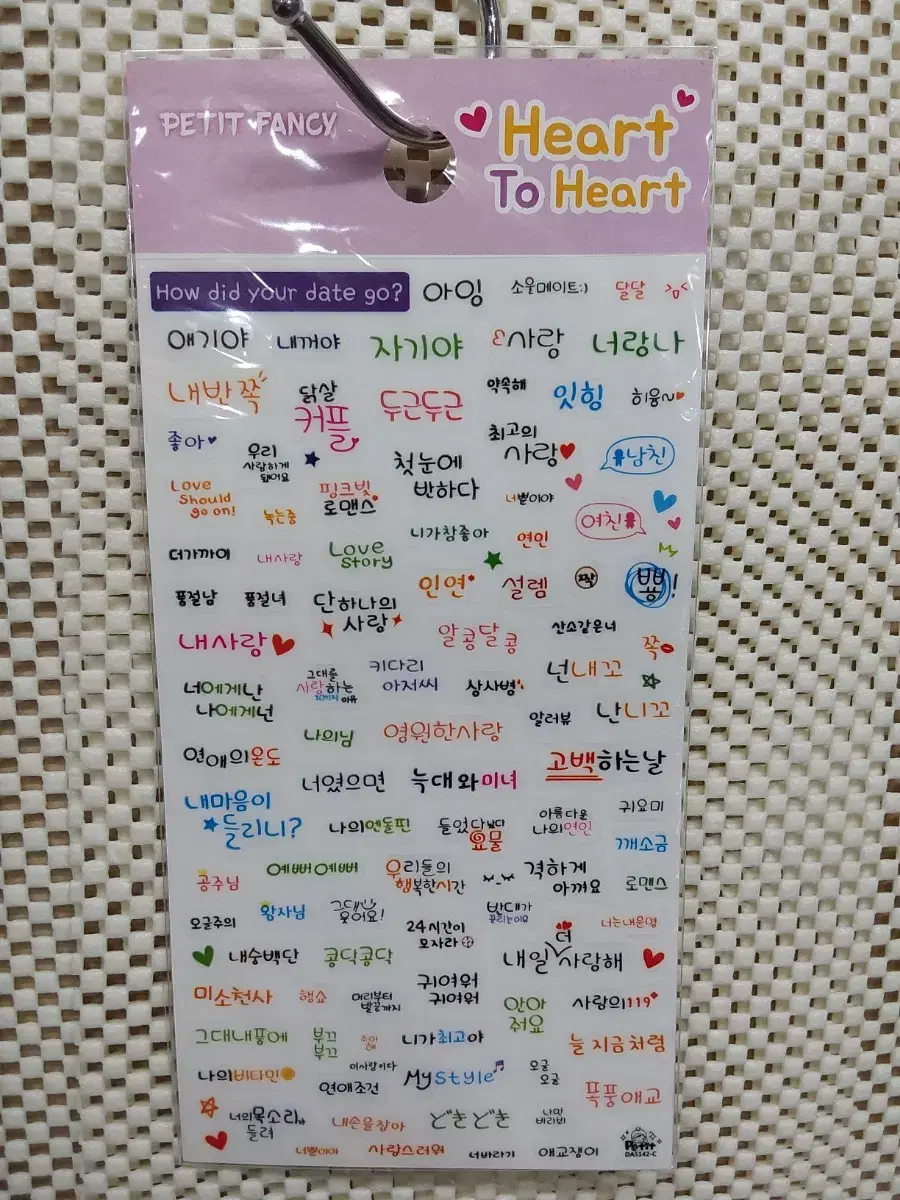 PETIT FANCY
Heart
To Heart
How did your date go?
아잉
소울메이트:)
달달
애기야
내꺼야
자기야
사랑
너랑나
내반쪽
닭살
커플
두근두근
약속해
잇힝
히융~
좋아
우리
사랑하게
됐어요
첫눈에
반하다
최고의
사랑
남친
Love
Should
go on!
녹는중
핑크빛
로맨스
너뿐이야
여친
더가까이
내사랑
Love
Story
니가참좋아
연인
인연
설렘
짝
뽕!
품절남
품절녀
단하나의
사랑
내사랑
알콩달콩
산소같은너
쪽
너에게난
나에게넌
그대를
사랑하는
10가지 이유
키다리
아저씨
상사병
넌내꼬
난니꼬
나의님
영원한사랑
알러뷰
연애의온도
너였으면
늑대와미녀
고백하는날
내마음이
들리니?
나의엔돌핀
들었다놨다
요물
아름다운
나의연인
귀요미
깨소금
공주님
예뻐예뻐
우리들의
행복한시간
격하게
아껴요
로맨스
오글주의
왕자님
그대
웃어요!
24시간이
모자라
반대가
끌리는이유
너는내운명
내숭백단
콩닥콩닥
더
내일사랑해
미소천사
행쇼
머리부터
발끝까지
귀여워
귀여워
안아
줘요
사랑의119
그대내품에
부끄
부끄
니가최고야
늘 지금처럼
나의비타민
이사람이다
연애조건
My Style
오글
오글
폭풍애교
너의목소리가
들려
내손을잡아
どきどき
나만
바라봐
너뿐이야
사랑스러워
너바라기
애교쟁이
Petit
DA5142-C